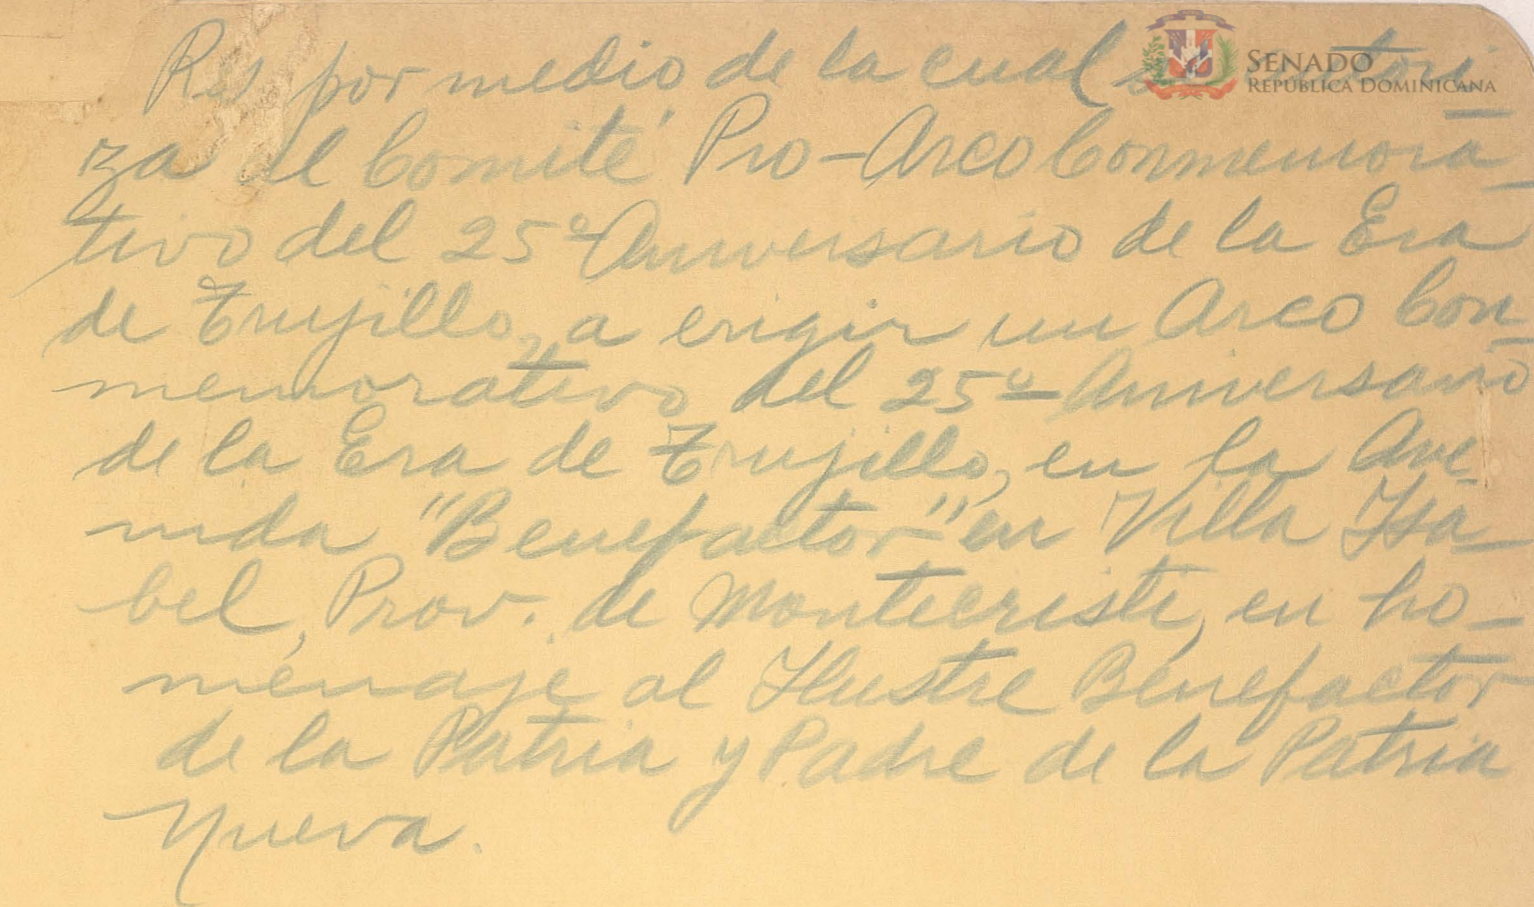 Res por medio de la cual
SENADO
REPÚBLICA DOMINICANA
za al Comité Pro-Arco Conmemora-
tivo del 25º Aniversario de la Era
de Trujillo, a erigir un Arco Con-
memorativo del 25º Aniversario
de la Era de Trujillo, en la Ave-
nida "Benefactor" en Villa Isa-
bel, Prov. de Montecristi, en ho-
menaje al Ilustre Benefactor
de la Patria y Padre de la Patria
Nueva.